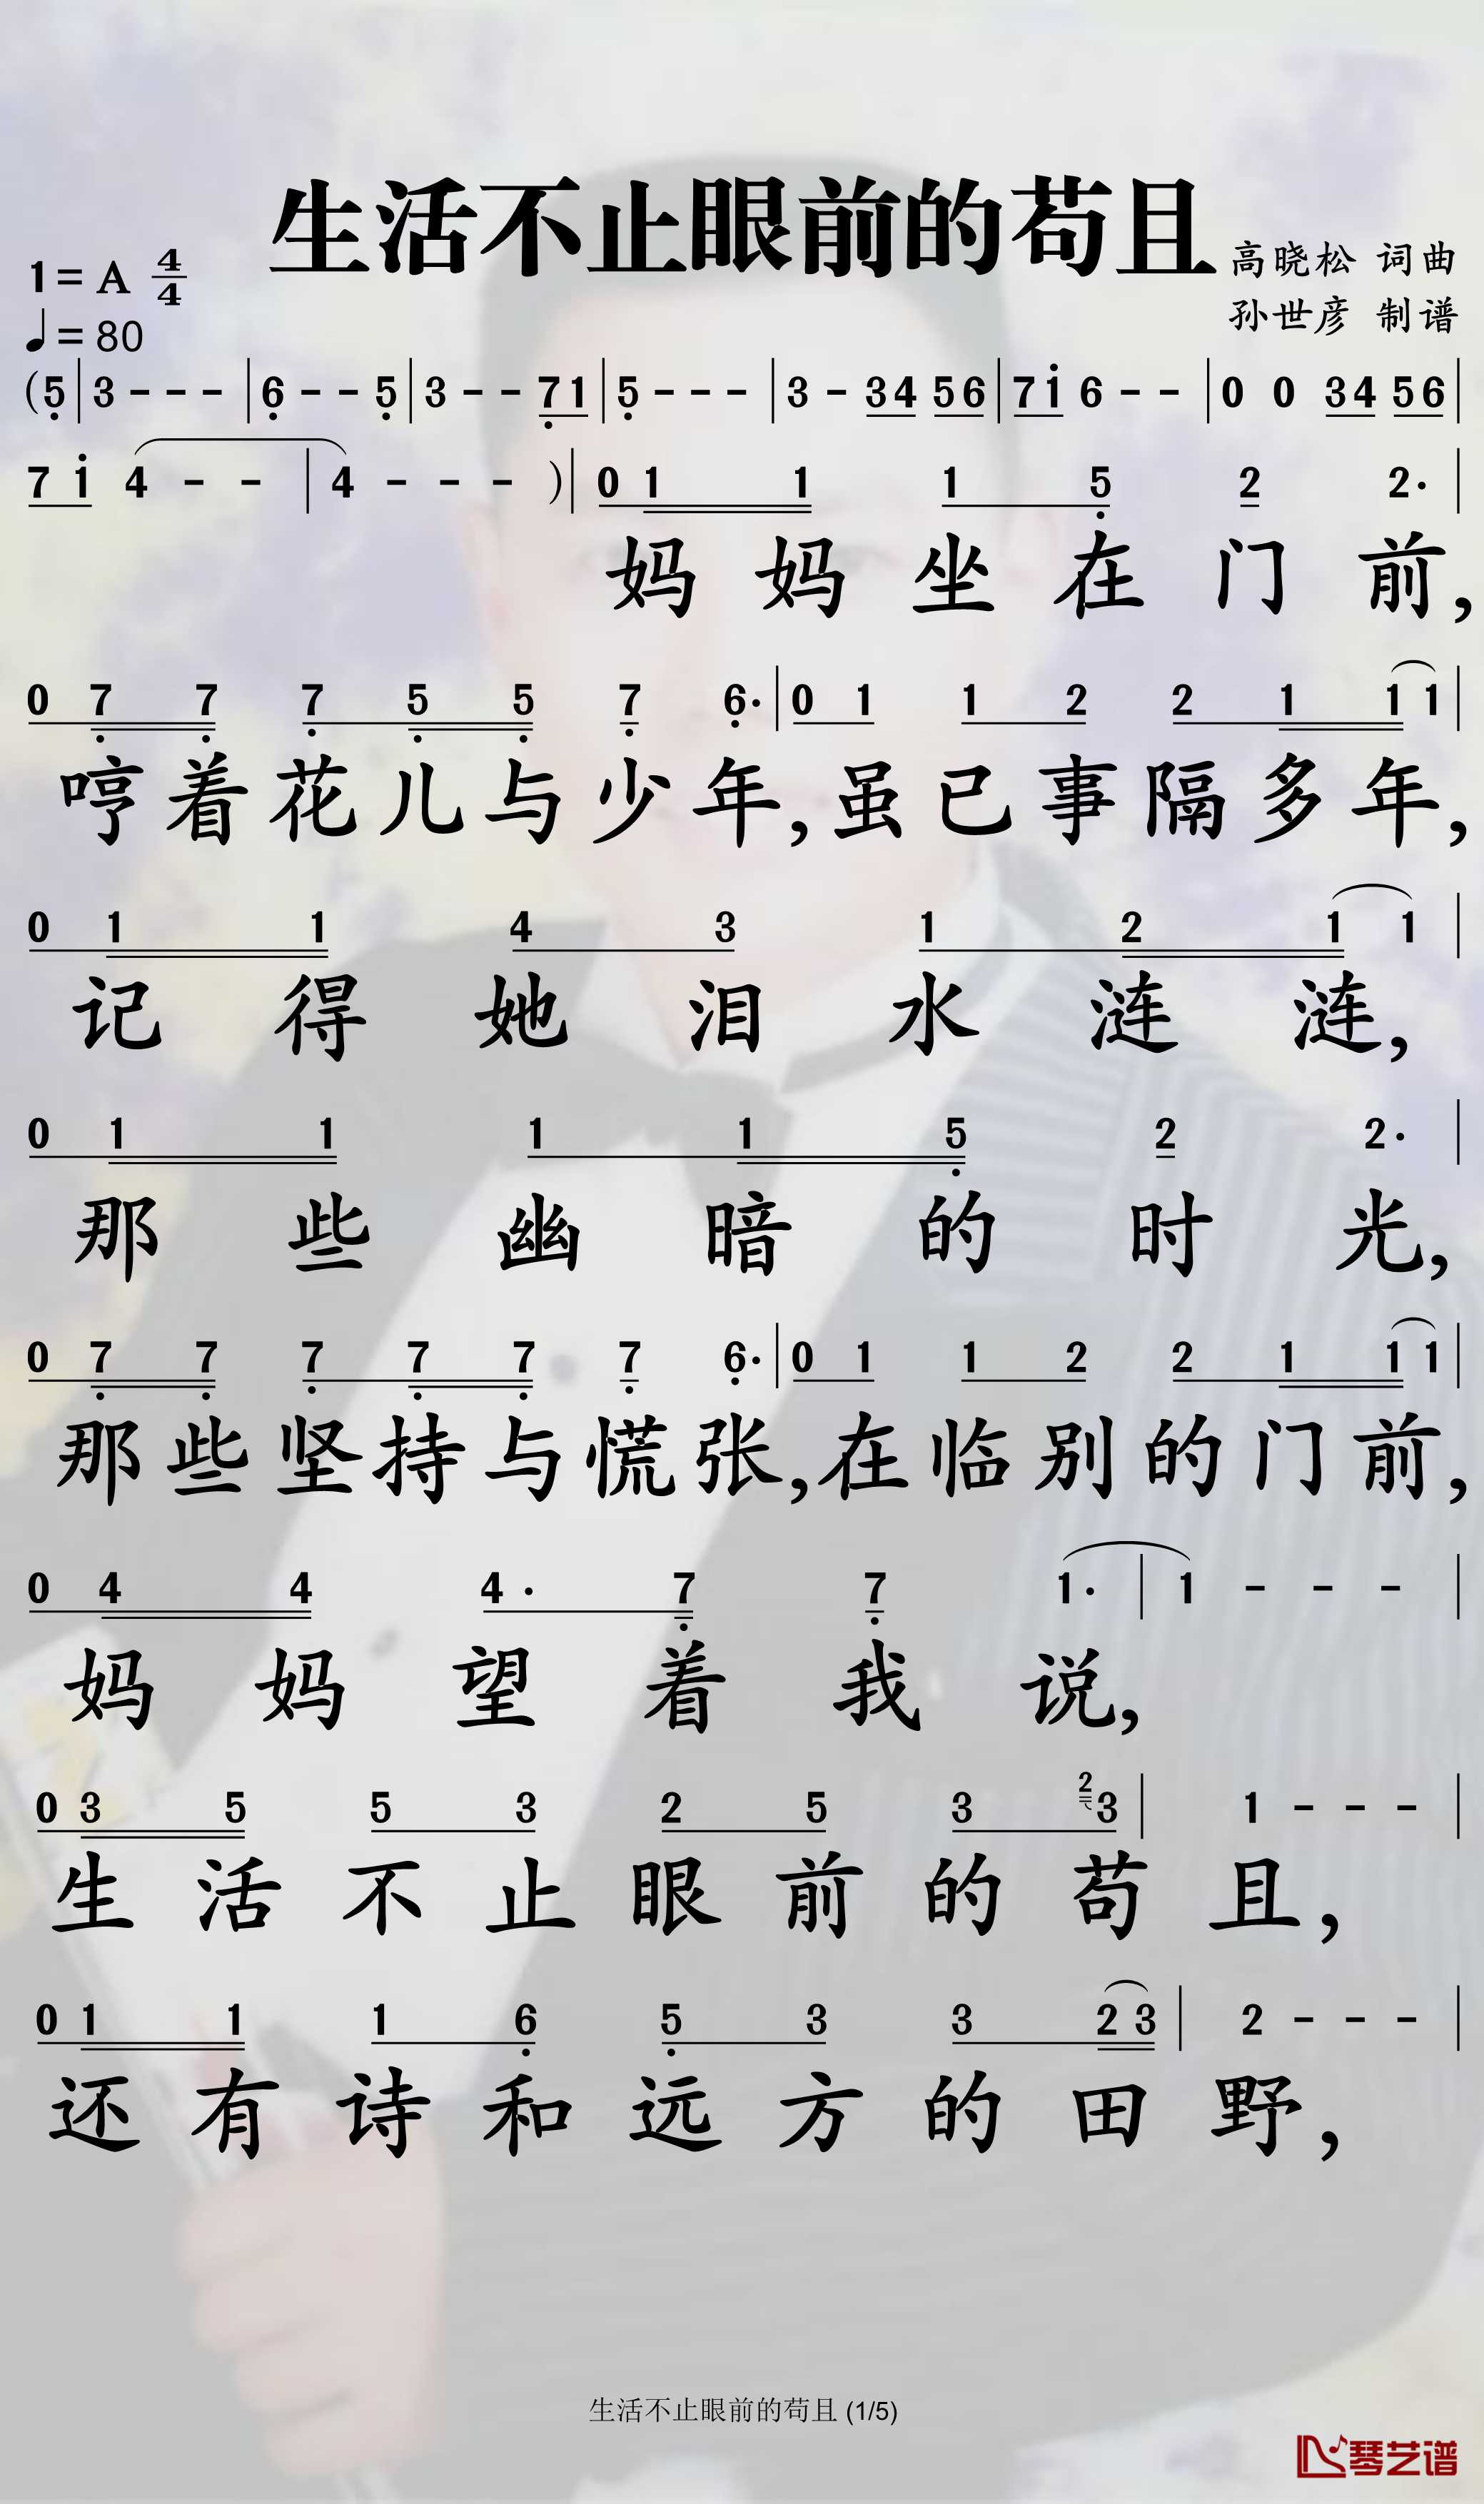 生活不止眼前的苟且
高晓松 词曲
1=A 4/4
孙世彦 制谱
♩=80
(5̣|3 - - -|6̣ - - 5̣|3 - - 7̣1|5̣ - - -|3 - 34 56|7i̇ 6 - -|0 0 34 56|
7 i̇ 4 - -|4 - - - )|0 1 1 1 5̣ 2 2·|
妈妈坐在门前,
0 7̣ 7̣ 7̣ 5̣ 5̣ 7̣ 6̣·|0 1 1 2 2 1 1 1|
哼着花儿与少年,虽已事隔多年,
0 1 1 4 3 1 2 1 1|
记得她泪水涟涟,
0 1 1 1 1 5̣ 2 2·|
那些幽暗的时光,
0 7̣ 7̣ 7̣ 7̣ 7̣ 7̣ 6̣·|0 1 1 2 2 1 1 1|
那些坚持与慌张,在临别的门前,
0 4 4 4· 7̣ 7̣ 1·|1 - - -|
妈妈望着我说,
0 3 5 5 3 2 5 3 2 3|1 - - -|
生活不止眼前的苟且,
0 1 1 1 6̣ 5̣ 3 3 2 3|2 - - -|
还有诗和远方的田野,
生活不止眼前的苟且 (1/5)
琴艺谱